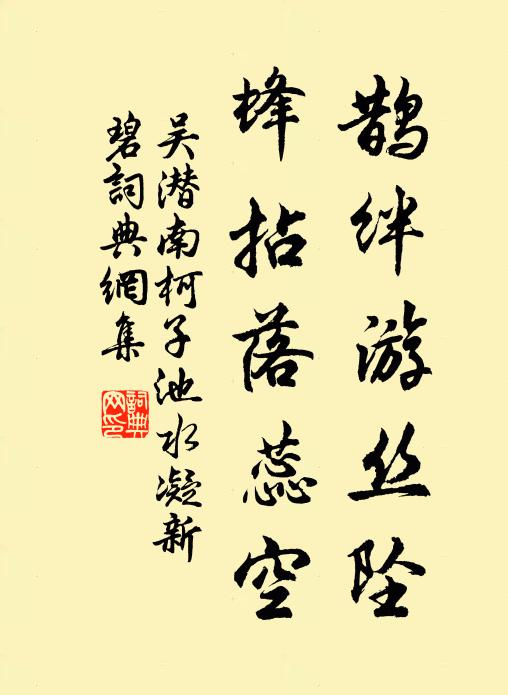 鹊绊游丝坠
蜂拈落蕊空
吴潜南柯子池水凝新
碧詞典網集
詞典
网印